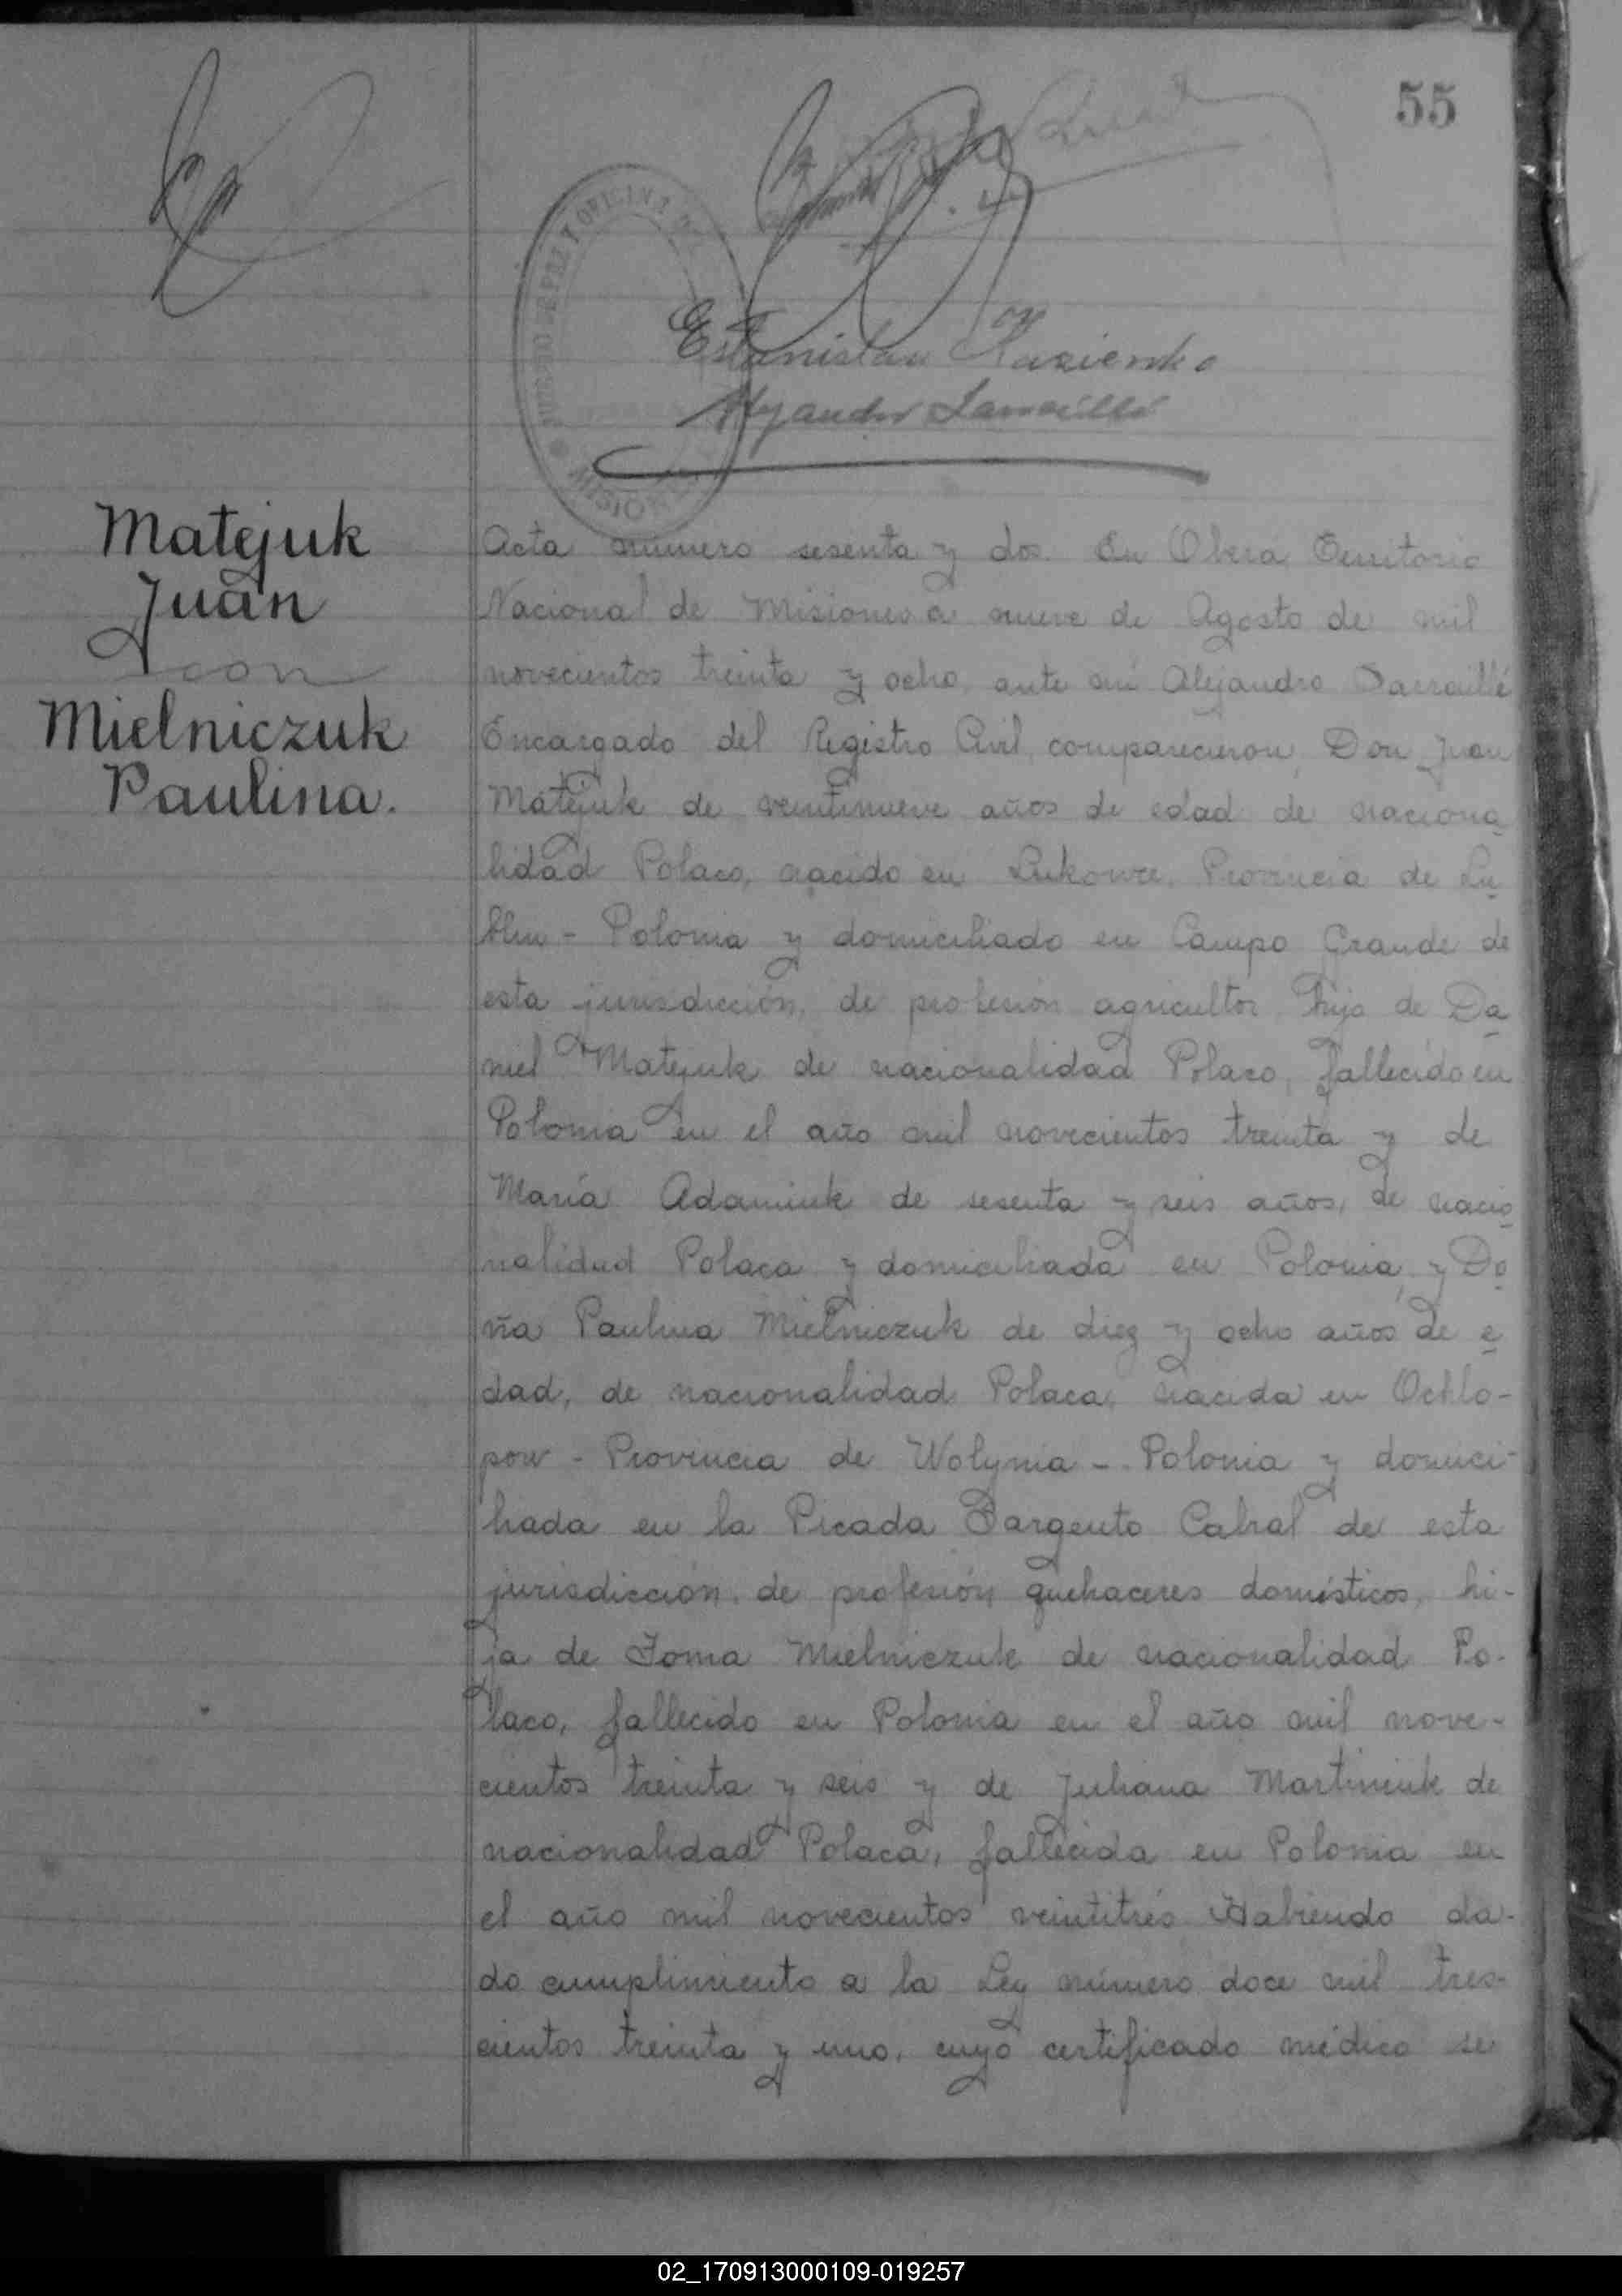 55
JUZGADO DE PAZ Y OFICINA DE
MISIONES
Estanislau
Matejuk
Juan
con
Mielniczuk
Paulina.
Acta número sesenta y dos. En Oberá, Territorio
Nacional de Misiones a nueve de Agosto de mil
novecientos treinta y ocho, ante mí Alejandro
Encargado del Registro Civil, comparecieron, Don Juan
Matejuk de veintinueve años de edad de naciona
lidad Polaco, nacido en Lukowce, Provincia de Lu
blin - Polonia y domiciliado en Campo Grande de
esta jurisdicción, de profesión agricultor, hijo de Da
niel Matejuk de nacionalidad Polaco, fallecido en
Polonia en el año mil novecientos treinta y de
María Adamiuk de sesenta y seis años, de nacio
nalidad Polaca y domiciliada en Polonia, y Do
ña Paulina Mielniczuk de diez y ocho años de e
dad, de nacionalidad Polaca, nacida en Ochlo-
pow - Provincia de Wolynia - Polonia y domici-
liada en la Picada Sargento Cabral de esta
jurisdicción, de profesión quehaceres domésticos, hi-
ja de Toma Mielniczuk de nacionalidad Po-
laco, fallecido en Polonia en el año mil nove-
cientos treinta y seis y de Juliana Martiniuk de
nacionalidad Polaca, fallecida en Polonia en
el año mil novecientos veintitrés. Habiendo da-
do cumplimiento a la Ley número doce mil tres-
cientos treinta y uno, cuyo certificado médico se
02_170913000109-019257